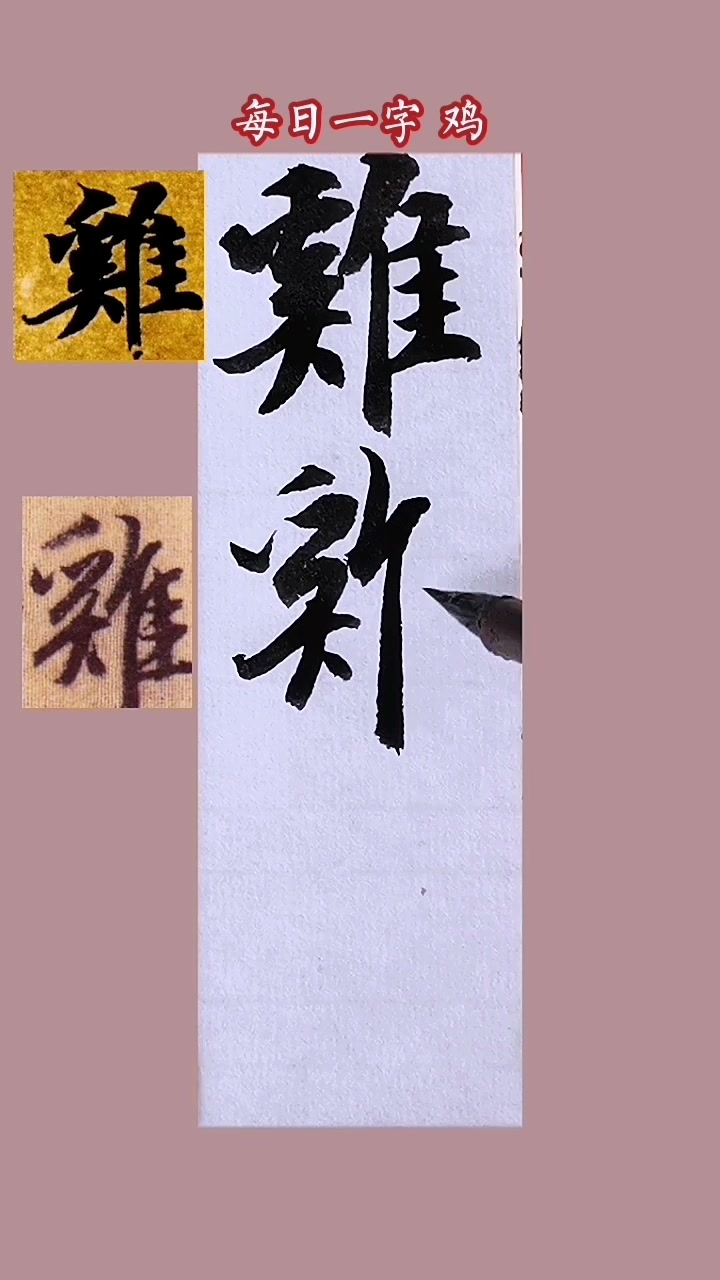 每日一字 鸡
雞
雞
雞